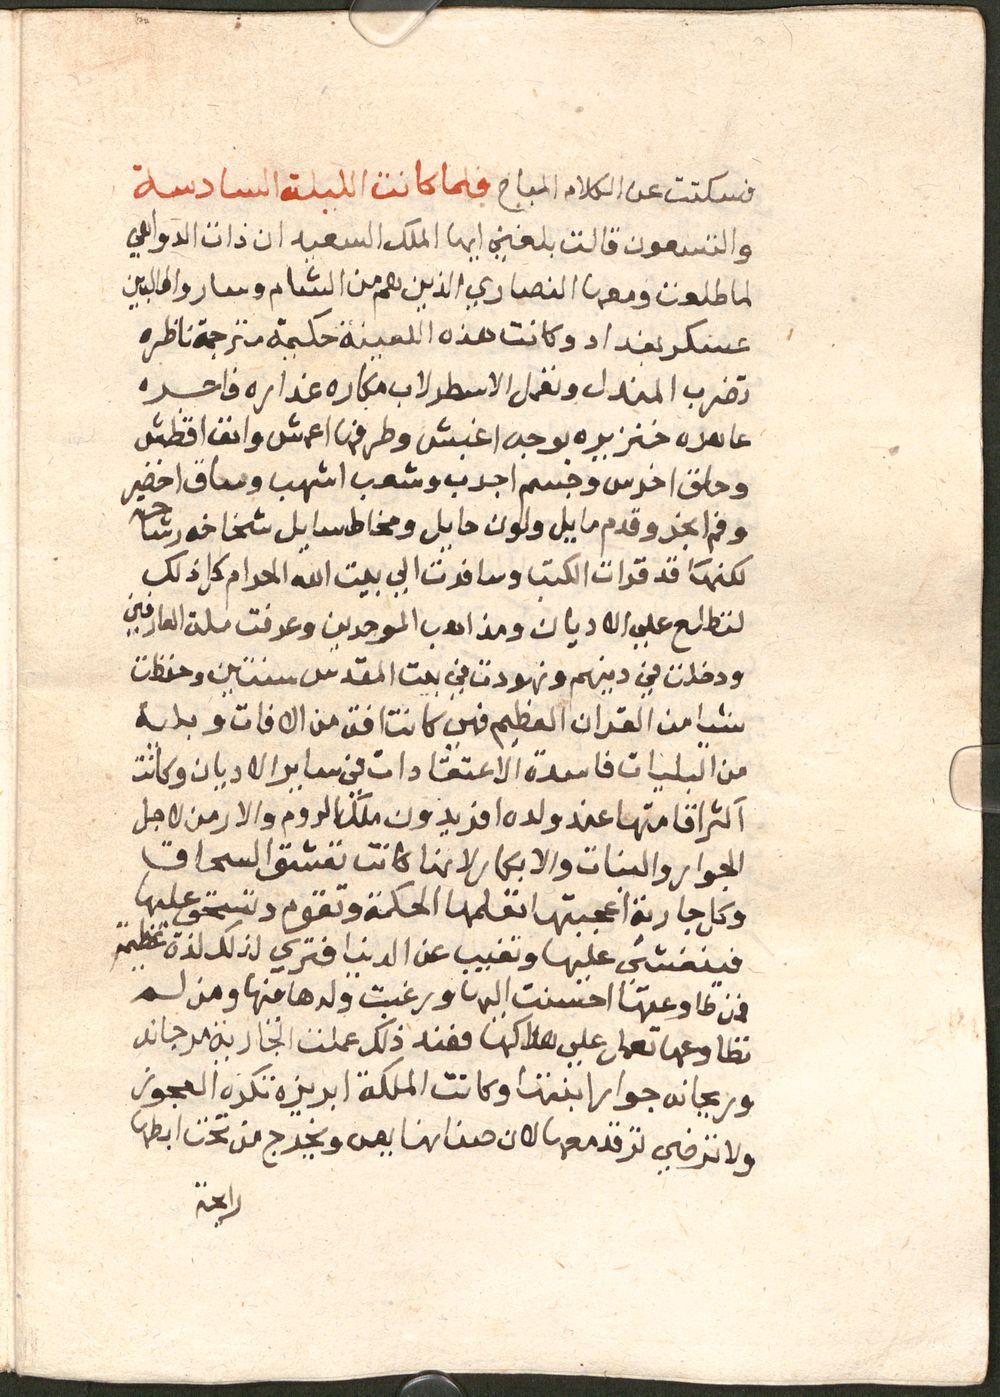 فسكتت عن الكلام المباح فلما كانت الليلة السادسة
والتسعون قالت بلغني ايها الملك السعيد ان ذات الدواهي
لما طلعت ومعها النصاري الذين هم من الشام وساروا طالبين
عسكر بغداد وكانت هذه اللعينة حكيمة مترجمة ناظره
تضرب المندل وتعمل الاسطرلاب مكاره غداره فاجره
عاهره خنزيره بوجه اغبش وطرفها اعمش وانف افطش
وحلق اخرس وجسم اجرب وشعب اشهب وساق اخضر
وفم ابخر وقدم مايل ولون حايل ومخاط سايل شخاخه
لكنها قد قرات الكتب وسافرت الي بيت الله الحرام كل ذلك
لتطلع علي الاديان ومذاهب الموحدين وعرفت ملة العارفين
ودخلت في دينهم وتهودت في بيت المقدس سنتين وحفظت
شيا من القران العظيم فهي كانت افة من الافات وبلية
من البليات فاسدة الاعتقادات في ساير الاديان وكانت
اكثر اقامتها عند ولده افريدون ملك الروم والارمن لاجل
الجوار والبنات والابكار لانها كانت تعشق السحاق
وكل جارية اعجبتها تعلمها الحكمة وتقوم وتسحق عليها
فينغشي عليها وتغيب عن الدنيا فتري لذلك لذة عظيمة
فمن طاوعتها احسنت اليها ورغبت ولدها فيها ومن لم
تطاوعها تعمل علي هلاكها فعند ذلك عملت الجارية مرجانه
وريحانه جوار ابنتها وكانت الملكة ابريزه تكره العجوز
ولا ترضي ترقد معها لان صنانها يعمي ويخرج من تحت ابطها
رايحة